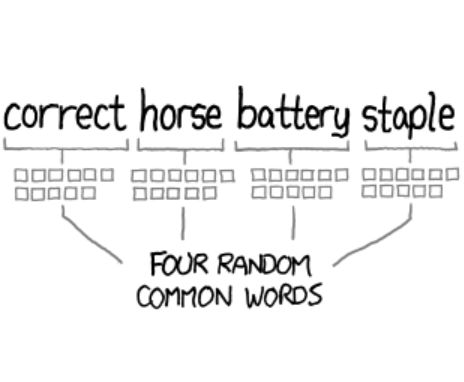 correct horse battery staple
FOUR RANDOM
COMMON WORDS